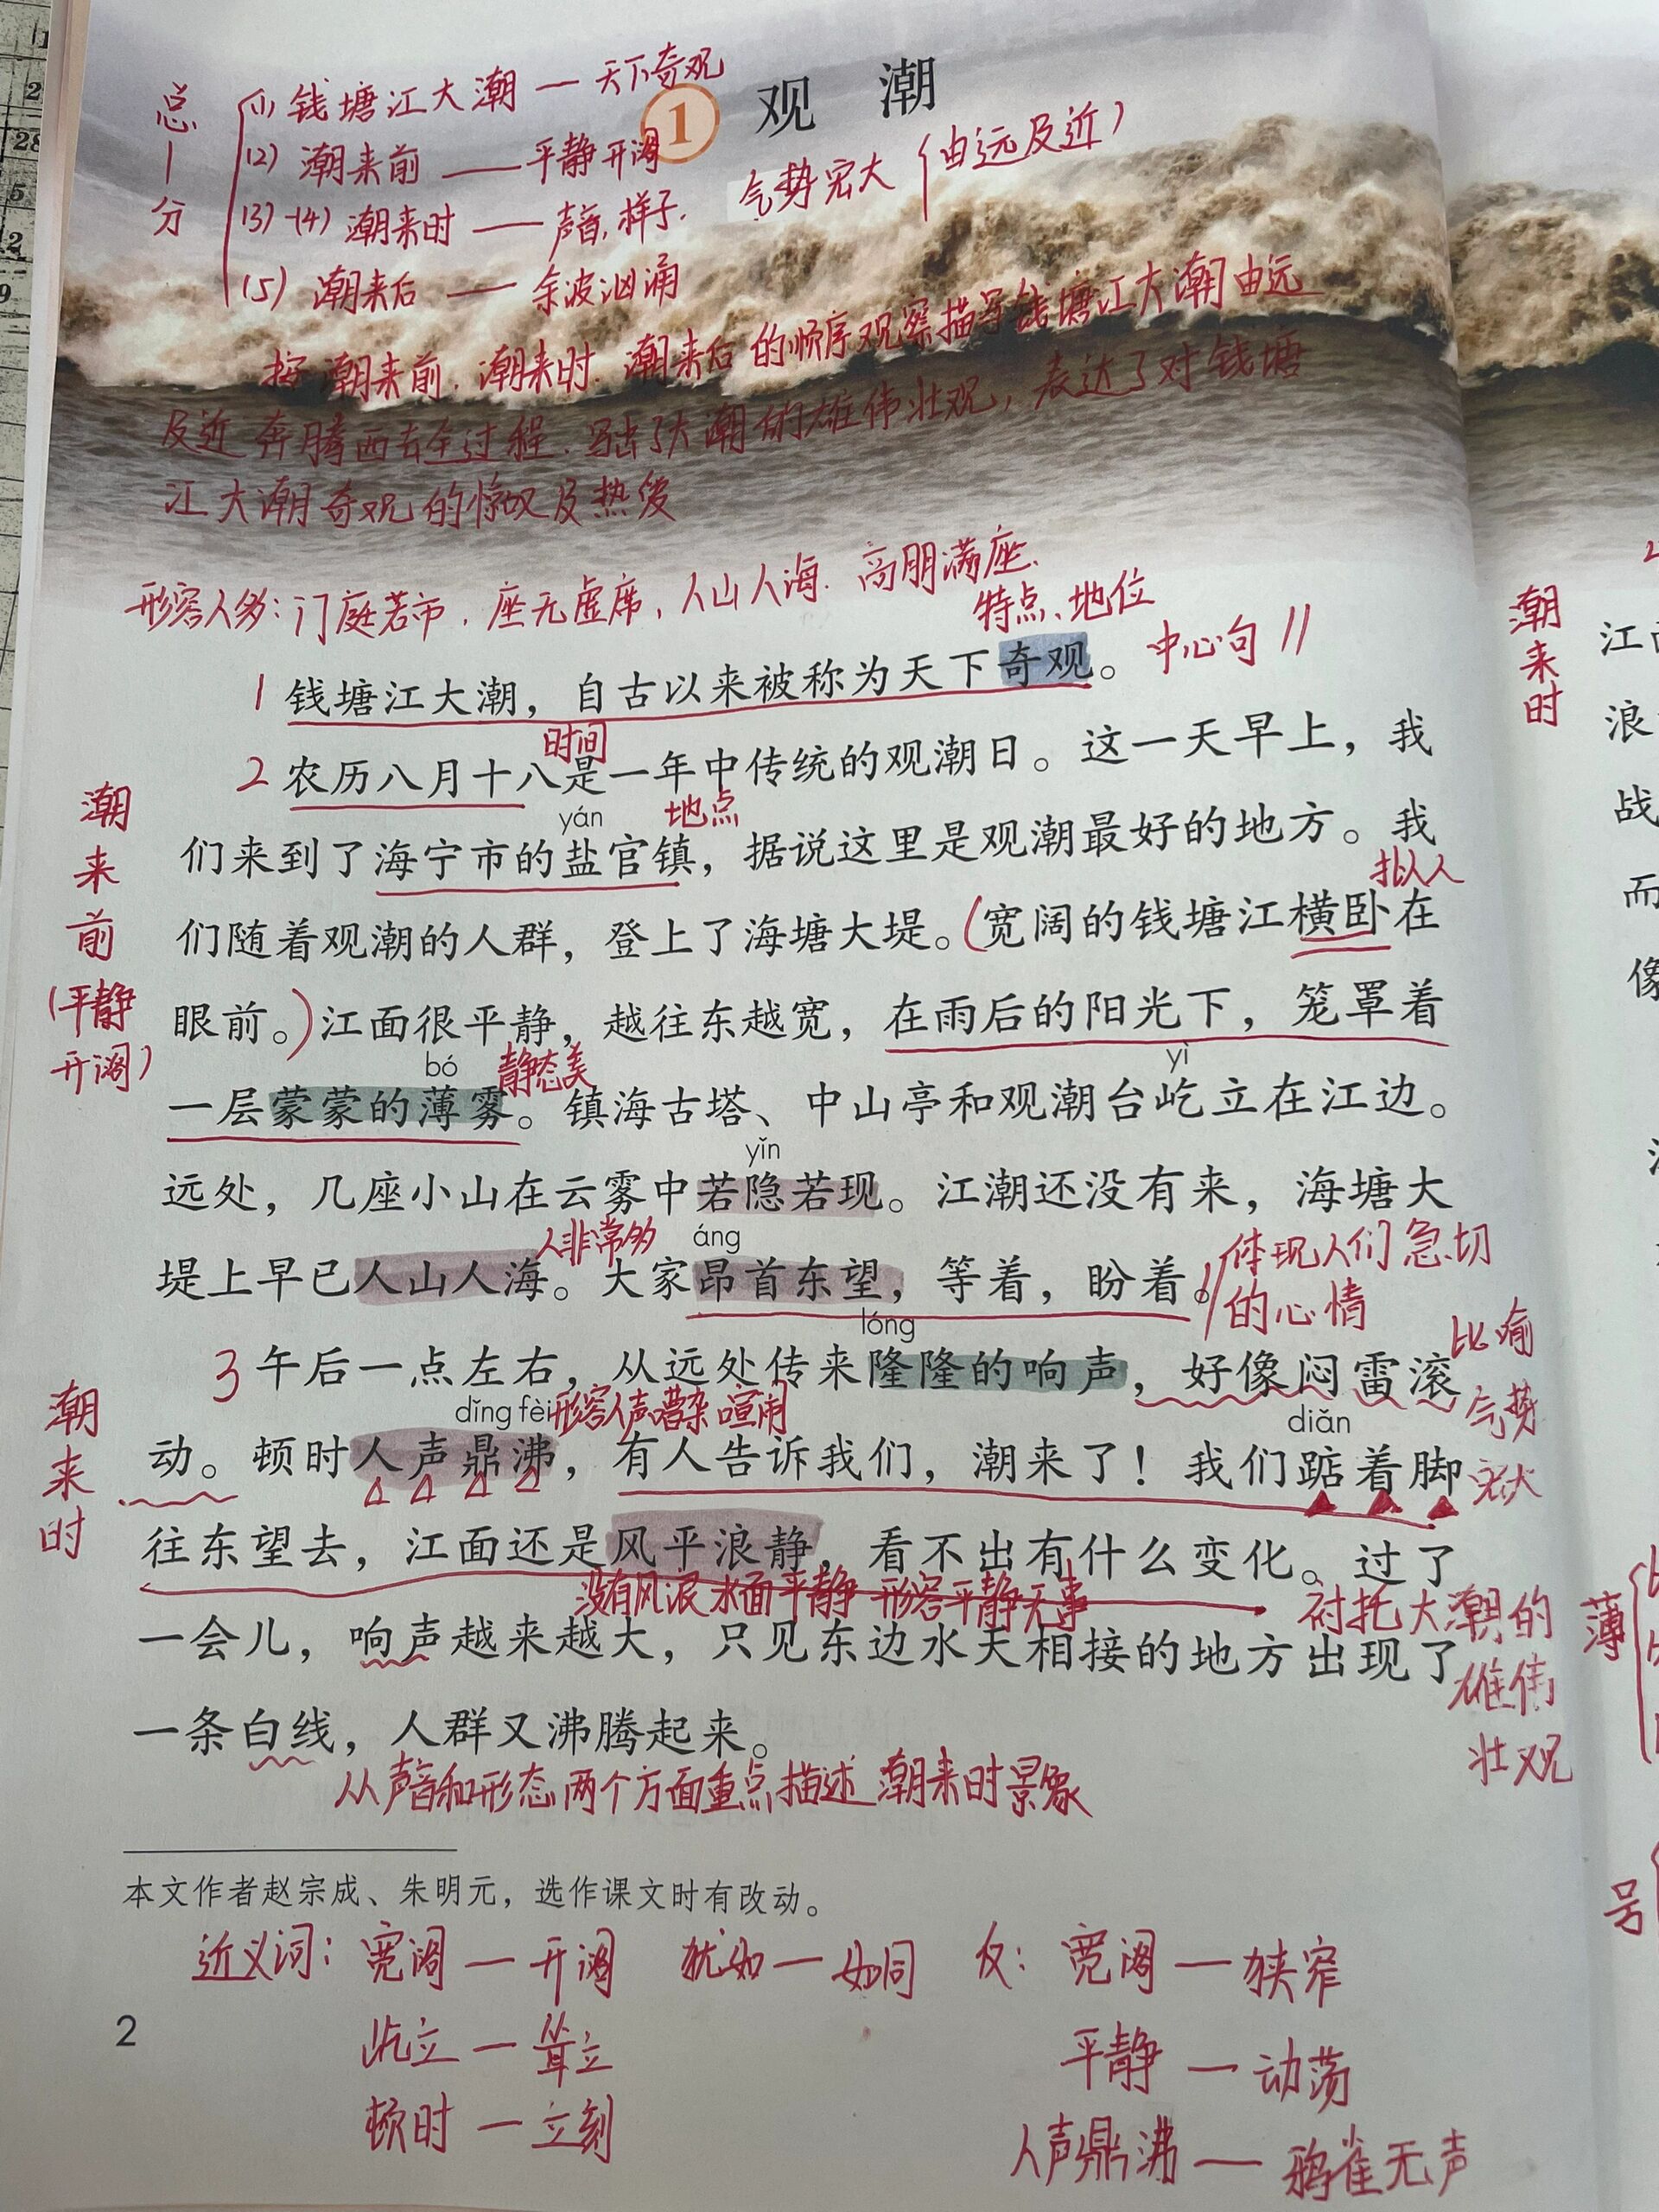 总—分
(1) 钱塘江大潮 — 天下奇观
1 观 潮
(2) 潮来前 —— 平静开阔
气势宏大 (由远及近)
(3)-(4) 潮来时 —— 声音.样子.
(5) 潮来后 —— 余波汹涌
按 潮来前.潮来时.潮来后的顺序观察描写钱塘江大潮由远
及近 奔腾西去全过程.写出了大潮的雄伟壮观,表达了对钱塘
江大潮奇观的惊叹及热爱
形容人多:门庭若市.座无虚席,人山人海.高朋满座.
特点、地位
1 钱塘江大潮，自古以来被称为天下奇观。 中心句
时间
2 农历八月十八是一年中传统的观潮日。这一天早上，我
yán
地点
们来到了海宁市的盐官镇，据说这里是观潮最好的地方。我
拟人
们随着观潮的人群，登上了海塘大堤。(宽阔的钱塘江横卧在
潮来前
(平静
开阔)
眼前。)江面很平静，越往东越宽，在雨后的阳光下，笼罩着
bó
静态美
yì
一层蒙蒙的薄雾。镇海古塔、中山亭和观潮台屹立在江边。
yǐn
远处，几座小山在云雾中若隐若现。江潮还没有来，海塘大
人非常多
áng
堤上早已人山人海。大家昂首东望，等着，盼着。
体现人们急切
的心情
lóng
3 午后一点左右，从远处传来隆隆的响声，好像闷雷滚
比喻
气势
宏大
dǐng fèi
形容人声嘈杂喧闹
diǎn
潮来时
动。顿时人声鼎沸，有人告诉我们，潮来了！我们踮着脚
往东望去，江面还是风平浪静，看不出有什么变化。过了
没有风浪水面平静 形容平静无事
衬托大潮的
雄伟
壮观
一会儿，响声越来越大，只见东边水天相接的地方出现了
一条白线，人群又沸腾起来。
从声音和形态两个方面重点描述潮来时景象
本文作者赵宗成、朱明元，选作课文时有改动。
近义词: 宽阔 — 开阔 犹如 — 如同 反: 宽阔 — 狭窄
屹立 — 耸立
平静 — 动荡
顿时 — 立刻
人声鼎沸 — 鸦雀无声
2
潮来时
浪
战
而
像
薄
号